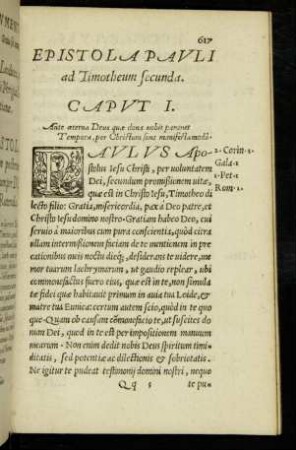 617
EPISTOLA PAVLI
ad Timotheum secunda.
CAPVT I.
Ante æterna Deus quæ dona nobis pararet
Tempora, per Christum sunt manifesta modò.
PAVLVS Apo- 2. Corin.
stolus Iesu Christi, per voluntatem Gala.
Dei, secundum promissionem vitæ, 1. Pet.
quæ est in Christo Iesu, Timotheo di Rom. 1.
lecto filio: Gratia, misericordia, pax à Deo patre, et
Christo Iesu domino nostro. Gratiam habeo Deo, cui
seruio à maioribus cum pura conscientia, quòd citra
ullam intermissionem faciam de te mentionem in pre
cationibus meis noctu dieq;, desiderans te uidere, me
mor tuarum lachrymarum, ut gaudio replear, ubi
commonefactus fuero eius, quæ est in te, non simula
tæ fidei quæ habitauit primum in auia tua Loide, &
matre tua Eunica: certum autem scio, quòd in te quo
que. Quam ob causam cōmonefacio te, ut suscites do
num Dei, quod in te est per impositionem manuum
mearum. Non enim dedit nobis Deus spiritum timi-
ditatis, sed potentiæ ac dilectionis & sobrietatis.
Ne igitur te pudeat testimonij domini nostri, neque
Qq 5 te pu-